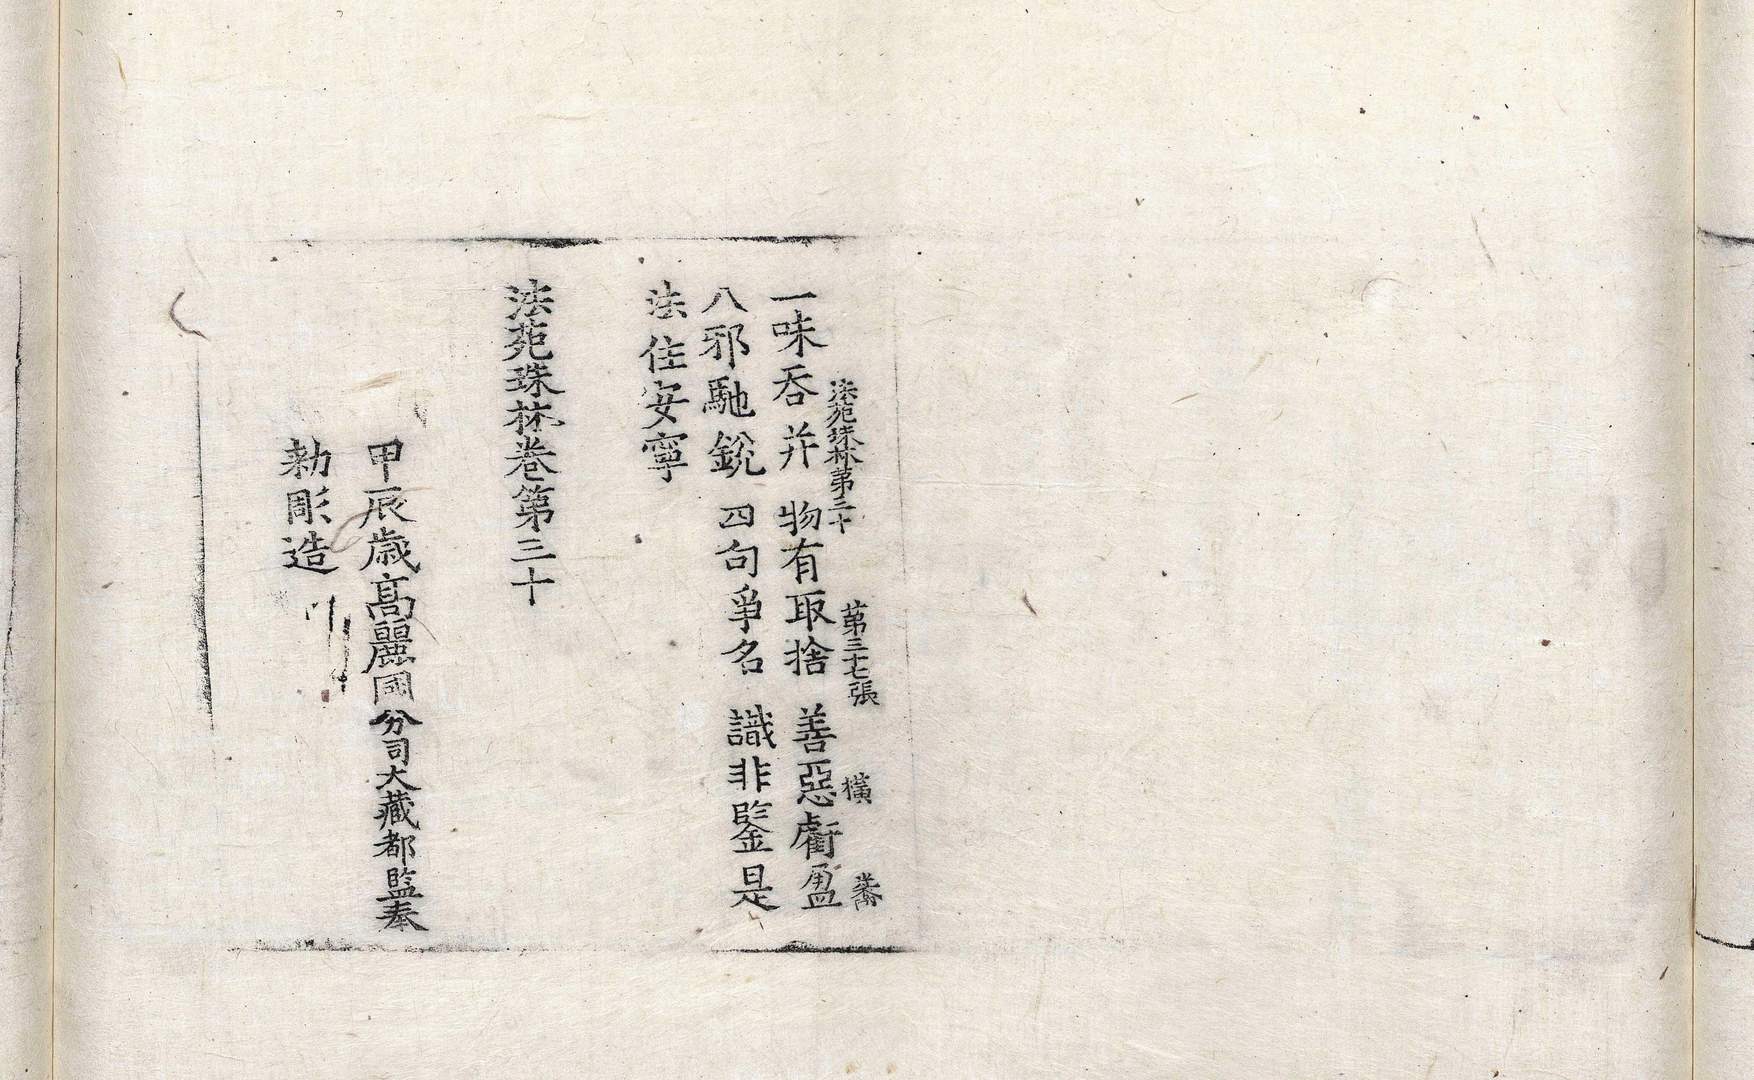 法苑珠林第三十 第三十七張 橫
一味吞并 物有取捨 善惡虧盈
八邪馳銳 四句爭名 識非鑒是
法住安寧
法苑珠林卷第三十
甲辰歲高麗國分司大藏都監奉
勅彫造